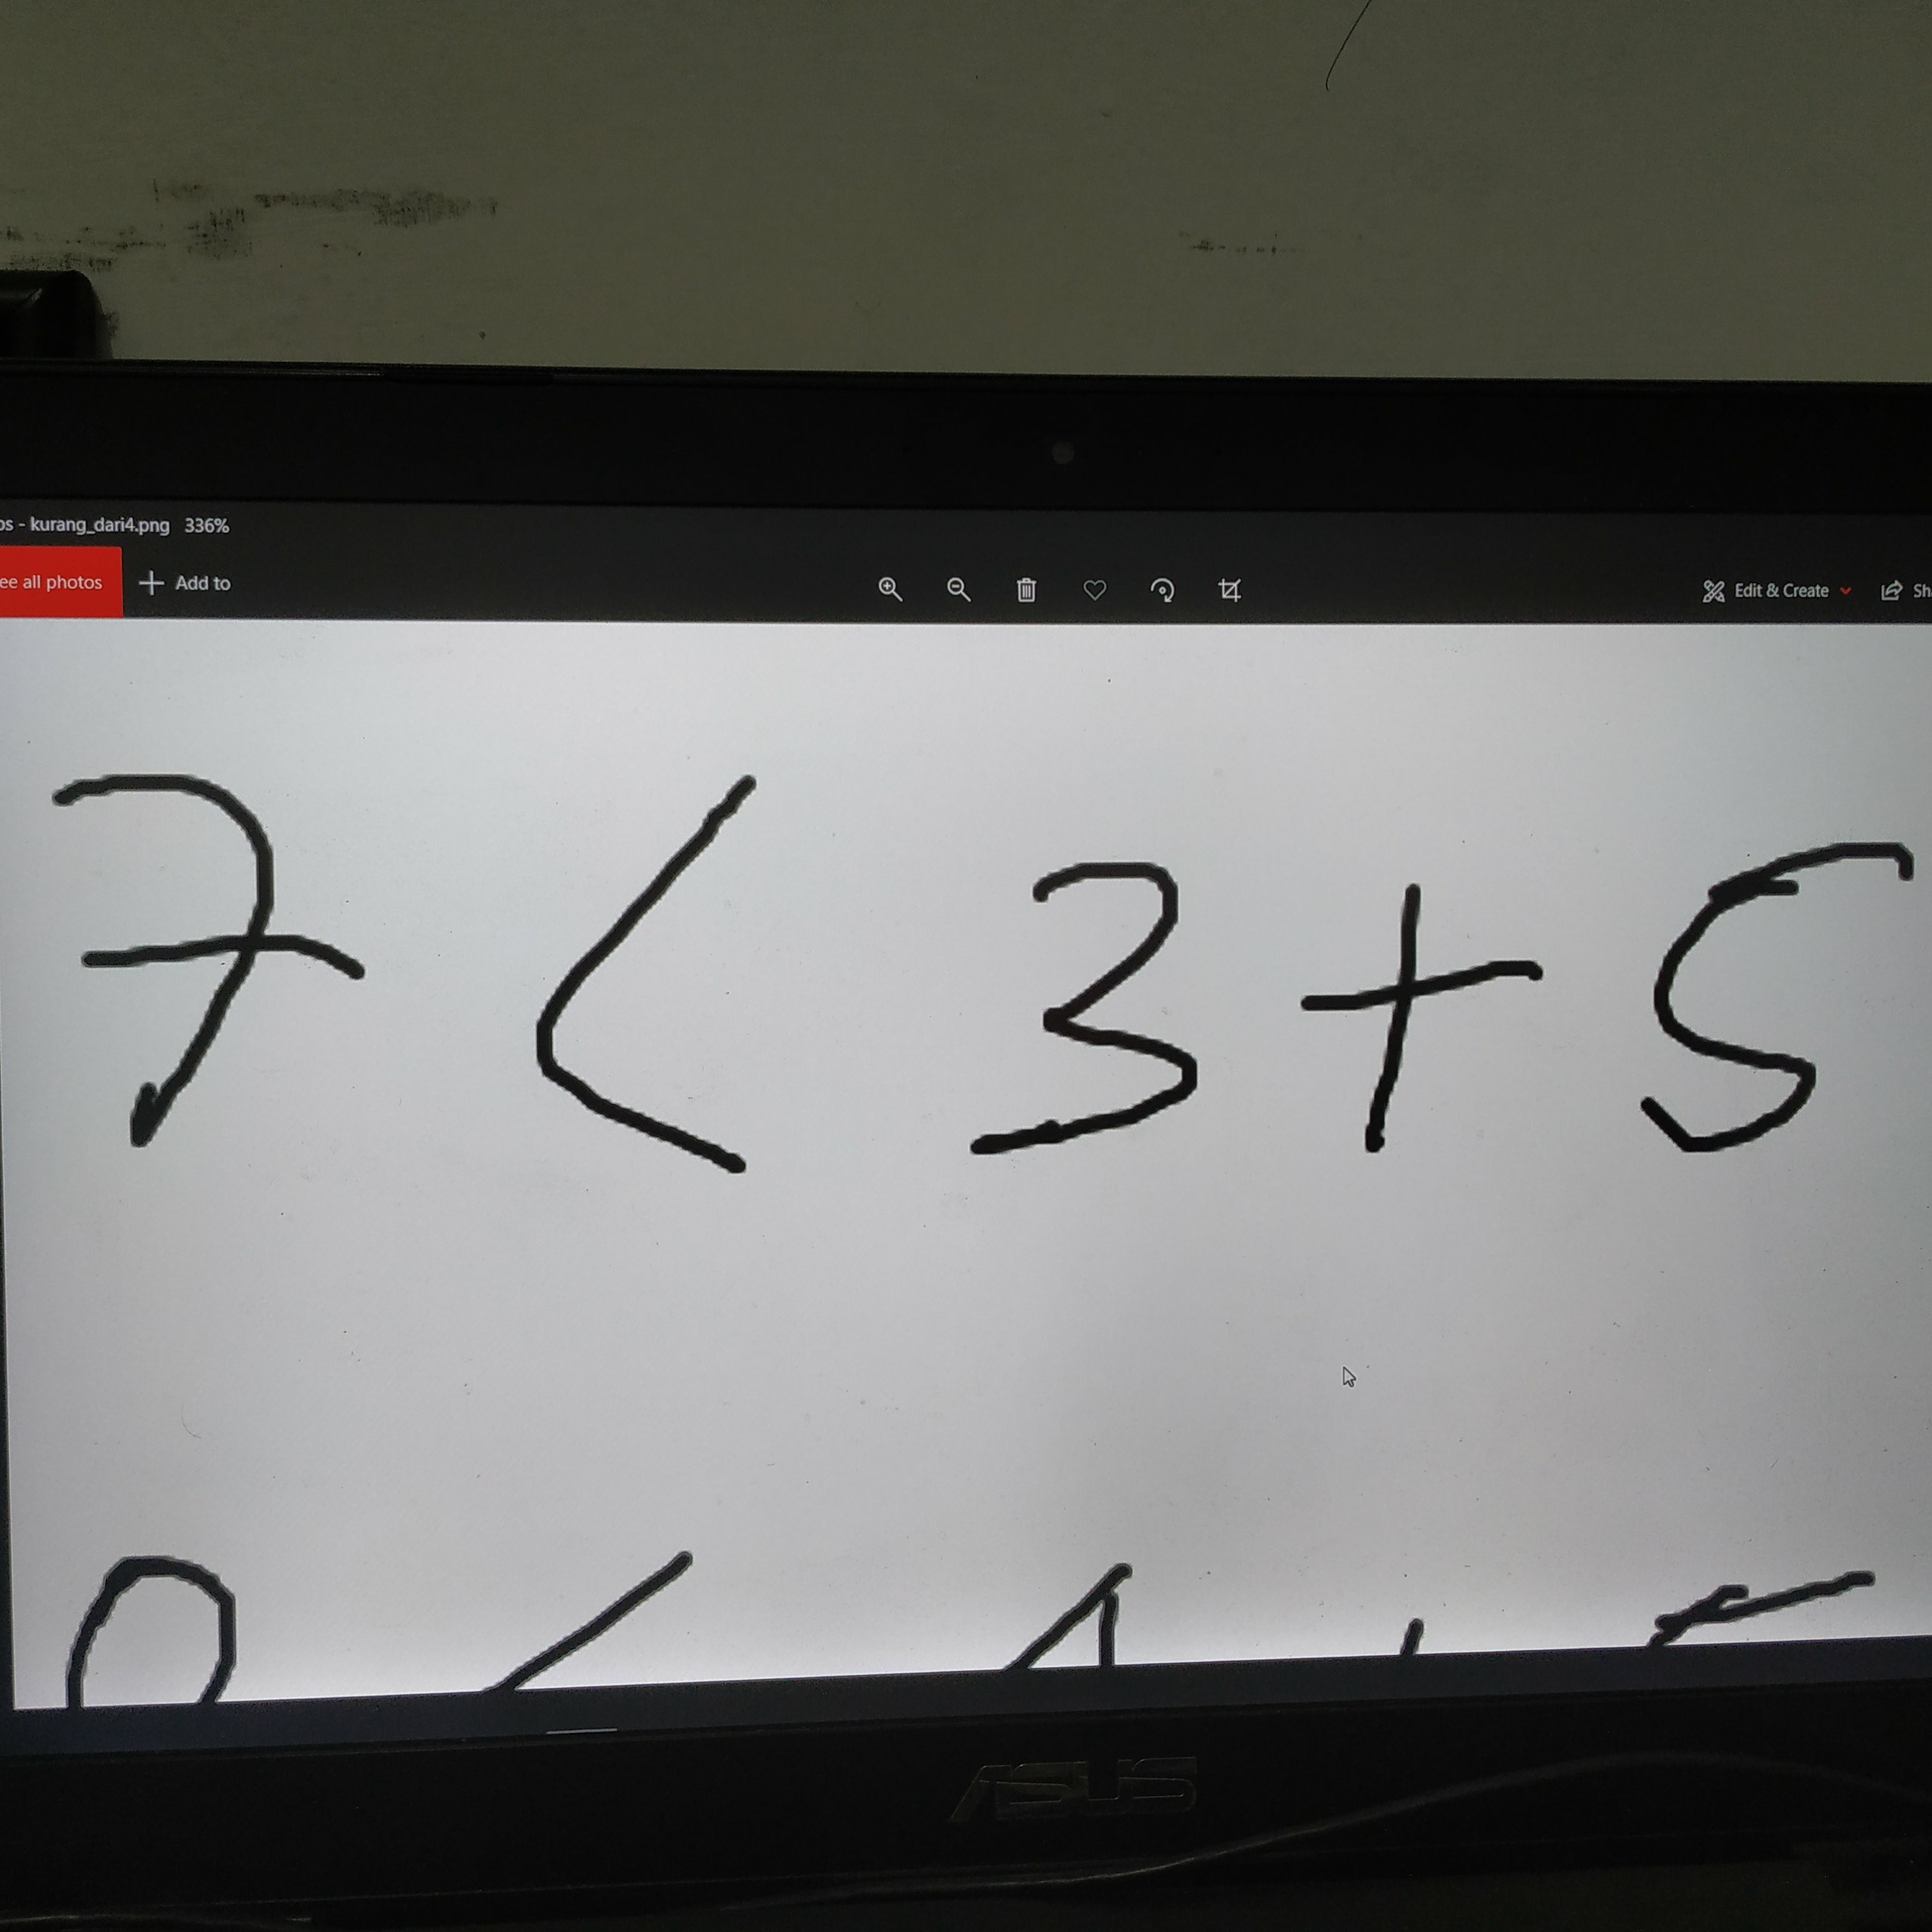 kurang_dari4.png 336%
all photos + Add to Edit & Create
7 < 3 + 5
ASUS